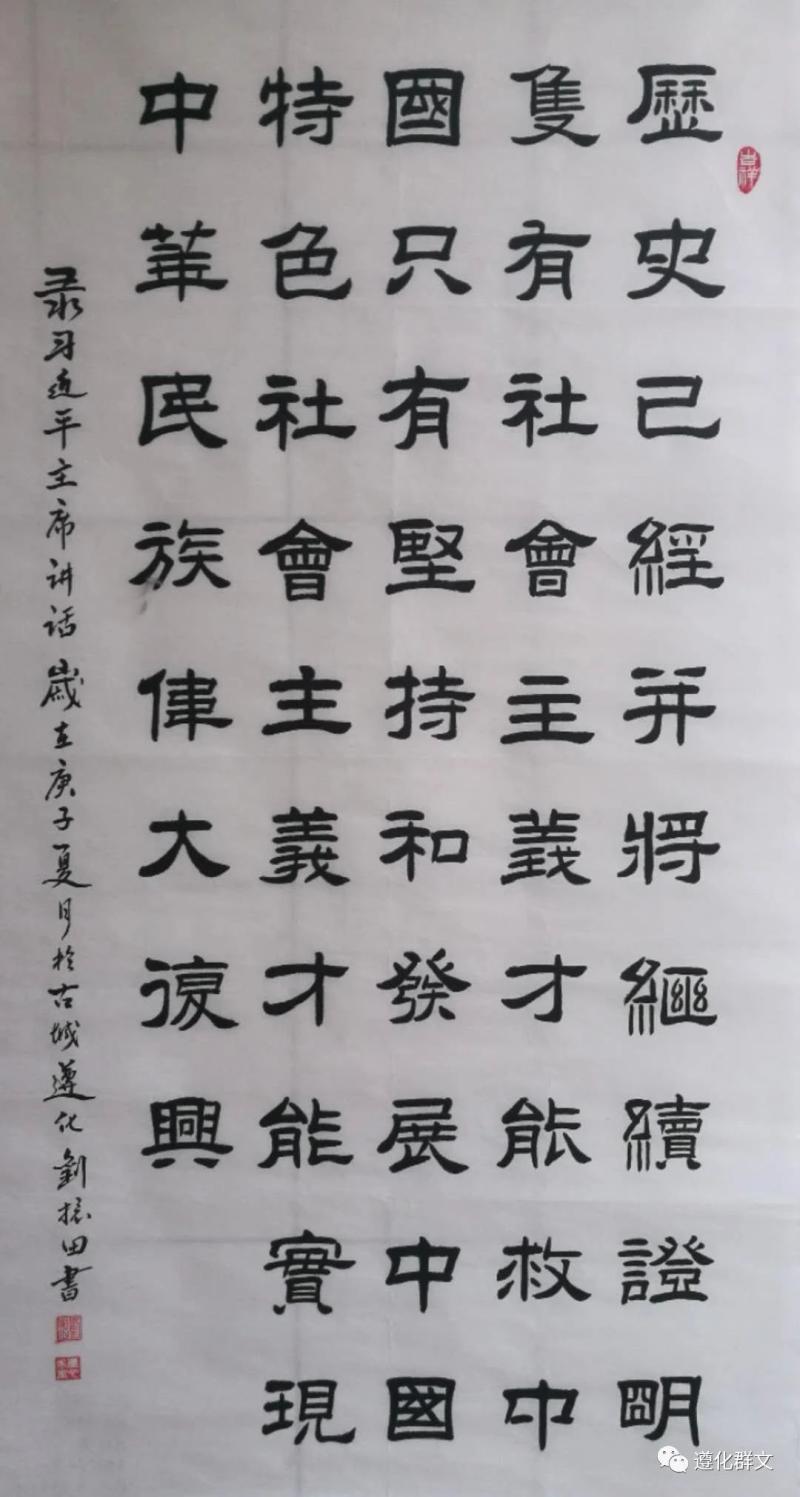 吉祥
歷史已經并將繼續證明
隻有社會主義才能救中
國只有堅持和發展中國
特色社會主義才能實現
中華民族偉大復興
录习近平主席讲话 歲在庚子夏月於古城遵化劉振田書
遵化群文